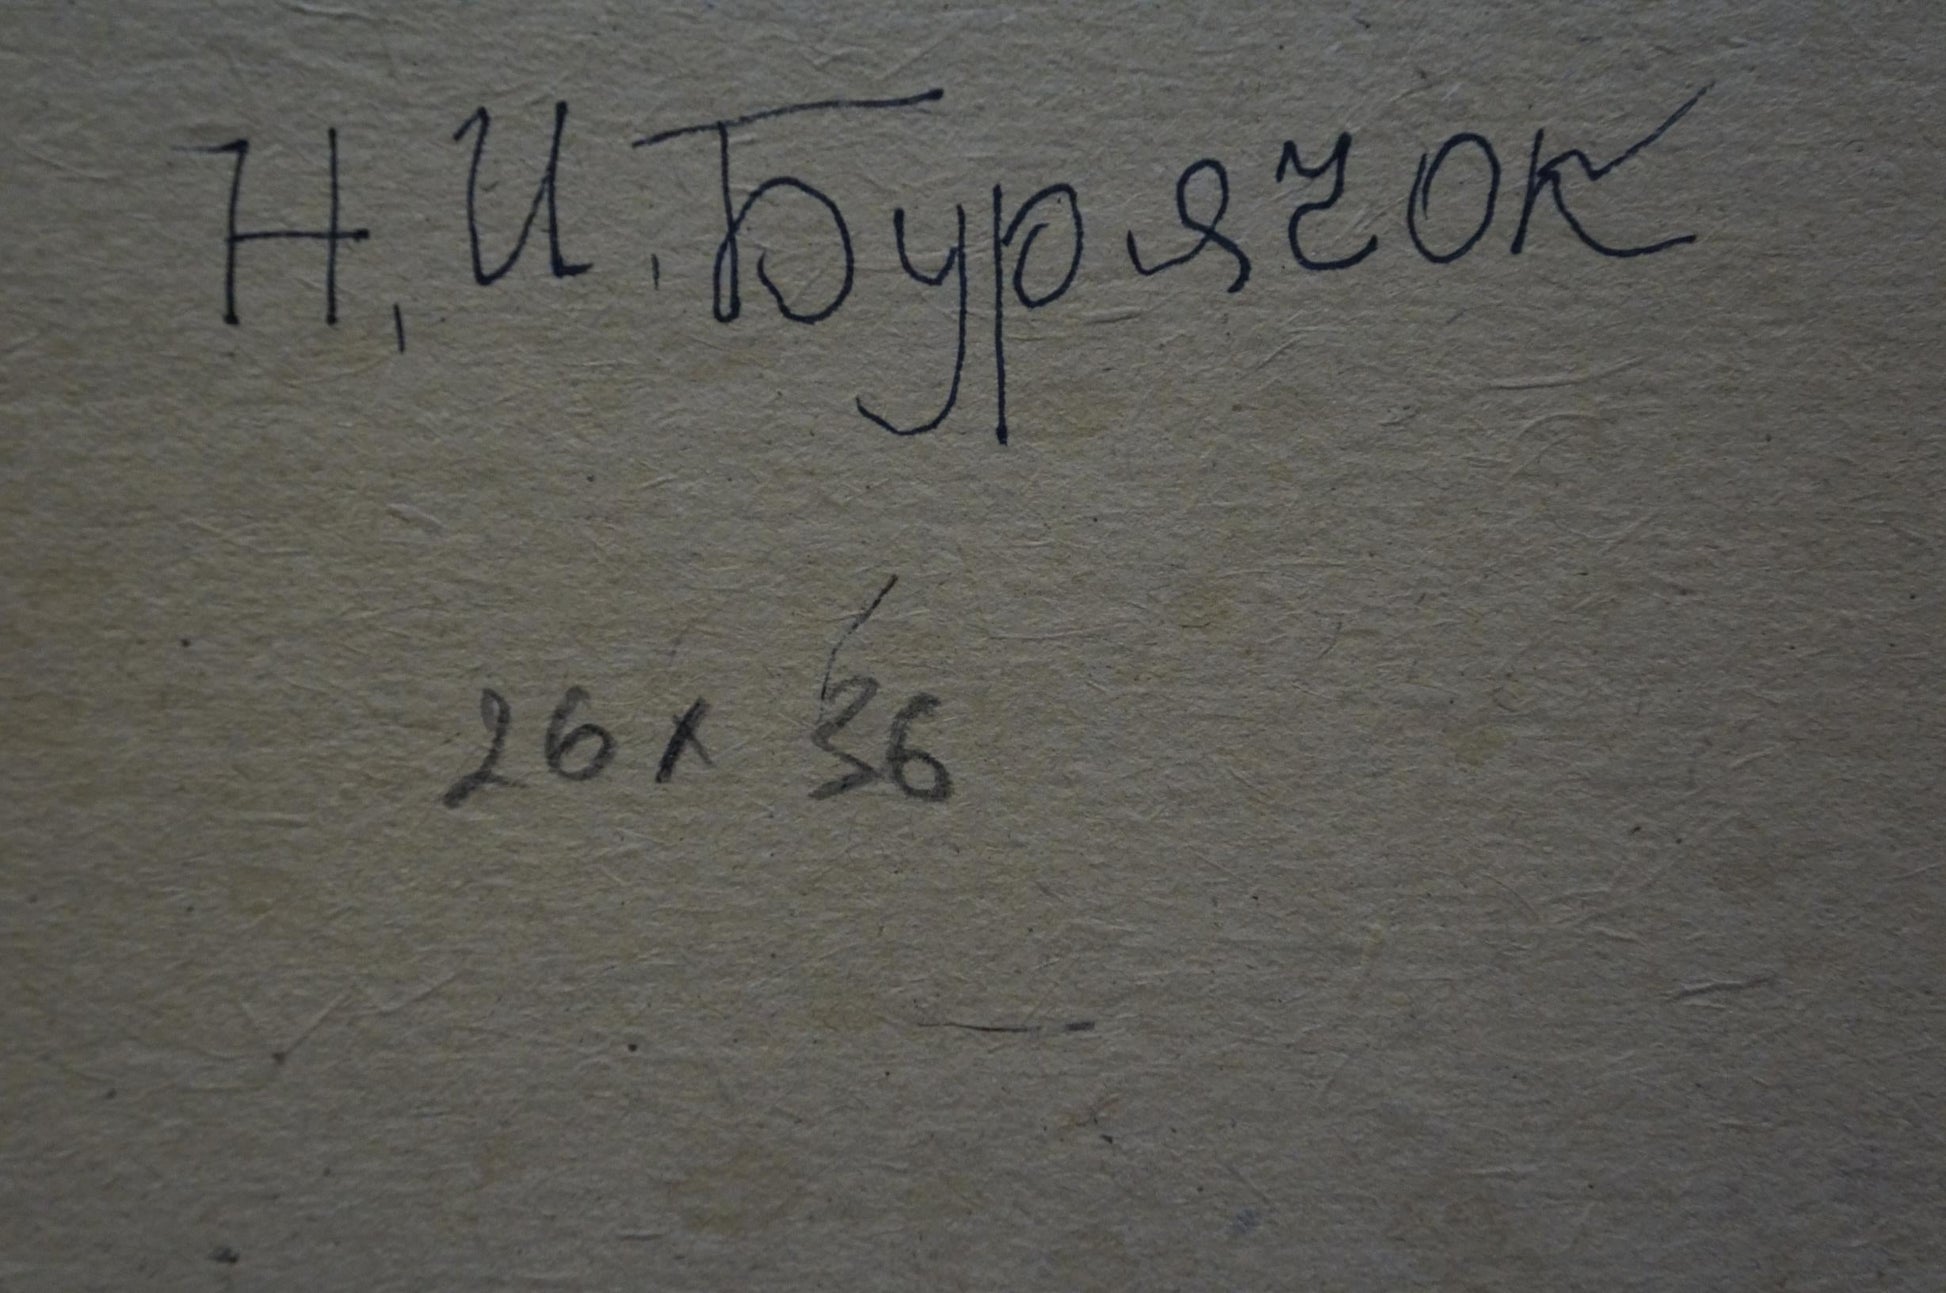 Н. И. Бурячок
26 x 36